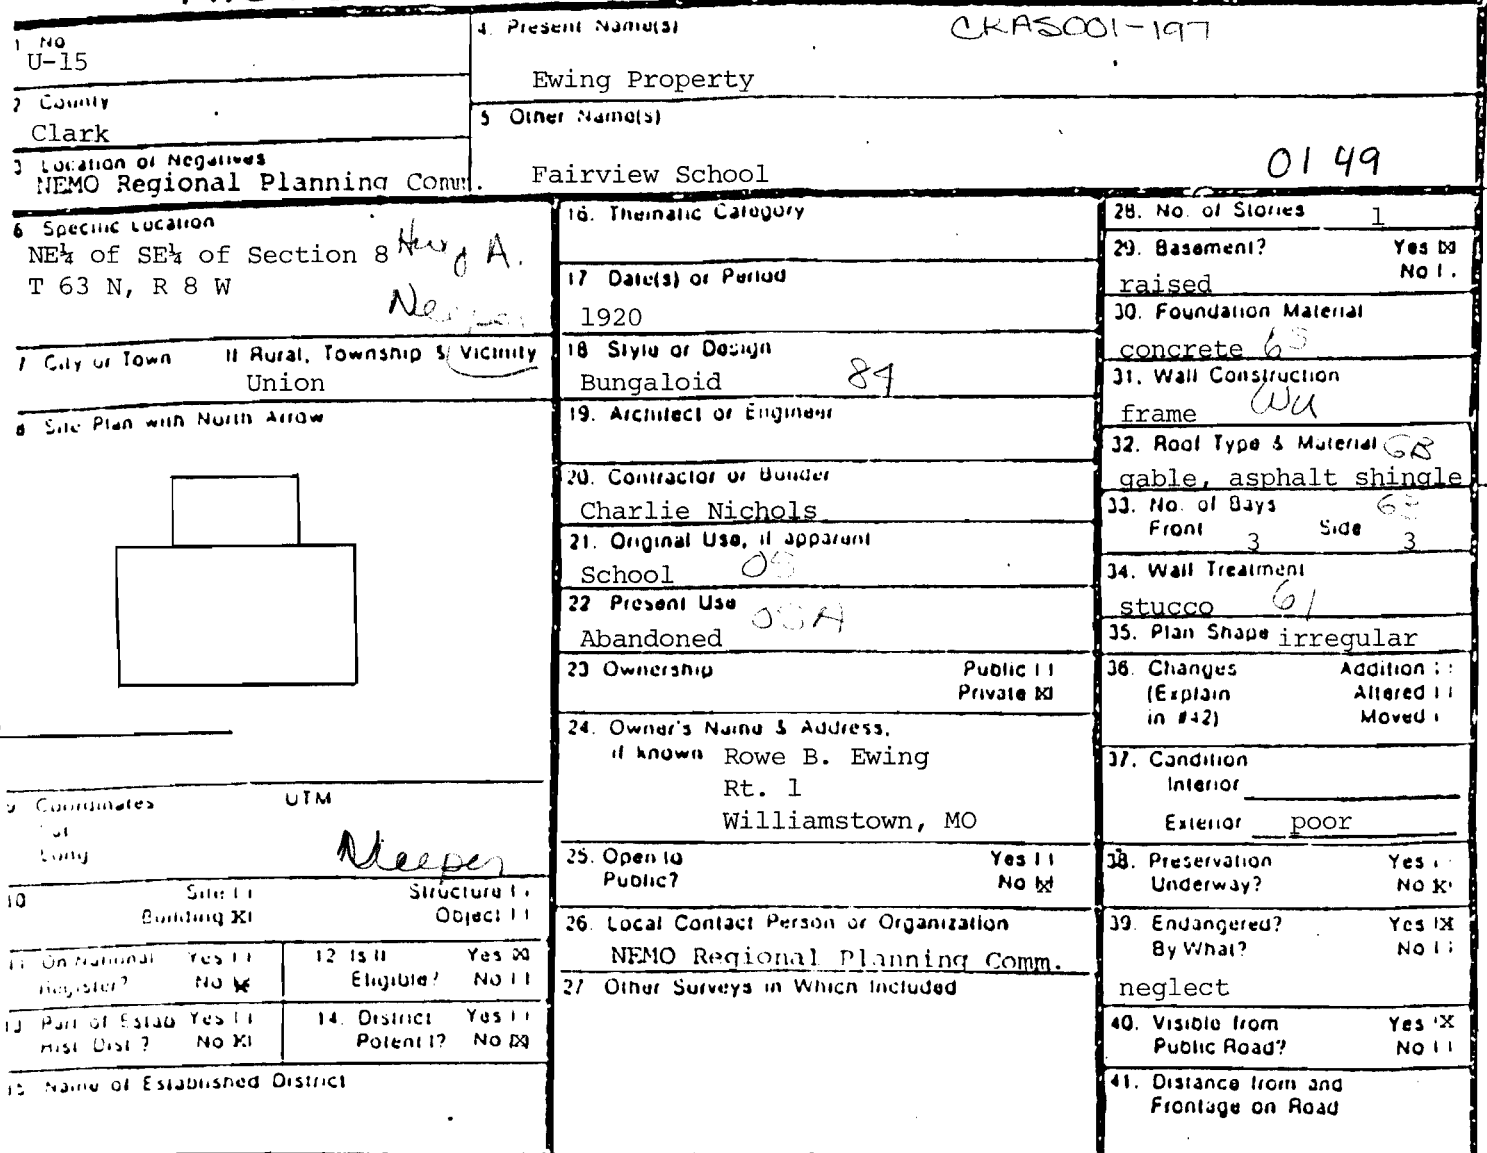 1 No
U-15
4. Present Name(s)
CKAS001-197
Ewing Property
2 County
Clark
5 Other Name(s)
Fairview School
0149
3 Location of Negatives
NEMO Regional Planning Comm.
6 Specific Location
NE¼ of SE¼ of Section 8
T 63 N, R 8 W
Hwy A.
Neeper
7 City or Town If Rural, Township & Vicinity
Union
8 Site Plan with North Arrow
9 Coordinates UTM
Lat
Long
Neeper
10 Site [ ] Structure [ ]
Building [X] Object [ ]
11 On National Register? Yes [ ] No [X]
12 Is It Eligible? Yes [X] No [ ]
13 Part of Estab Hist Dist? Yes [ ] No [X]
14. District Potent'l? Yes [ ] No [X]
15 Name of Established District
16. Thematic Category
17 Date(s) or Period
1920
18 Style or Design
Bungaloid 84
19. Architect or Engineer
20. Contractor or Builder
Charlie Nichols
21. Original Use, if apparent
School 0S
22 Present Use
Abandoned
23 Ownership Public [ ]
Private [X]
24. Owner's Name & Address,
if known Rowe B. Ewing
Rt. 1
Williamstown, MO
25. Open to Public? Yes [ ]
No [X]
26. Local Contact Person or Organization
NEMO Regional Planning Comm.
27 Other Surveys in Which Included
28. No. of Stories 1
29. Basement? Yes [X]
No [ ]
raised
30. Foundation Material
concrete
31. Wall Construction
frame
32. Roof Type & Material GB
gable, asphalt shingle
33. No. of Bays
Front 3 Side 3
34. Wall Treatment
stucco 61
35. Plan Shape irregular
36. Changes Addition [ ]
(Explain Altered [ ]
in #42) Moved [ ]
37. Condition
Interior
Exterior poor
38. Preservation Yes [ ]
Underway? No [X]
39. Endangered? Yes [X]
By What? No [ ]
neglect
40. Visible from Yes [X]
Public Road? No [ ]
41. Distance from and
Frontage on Road